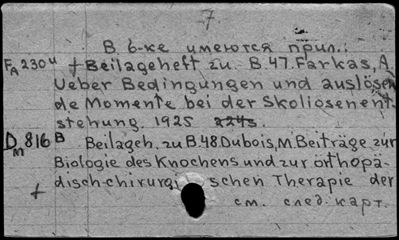 7
В б-ке имеются прил.:
FA 230u + Beilageheft zu B.47. Farkas, A.
Ueber Bedingungen und auslösen
de Momente bei der Skoliosenent-
stehung. 1925
DM 816 B Beilageh. zu B.48 Dubois, M. Beiträge zur
Biologie des Knochens und zur orthopä-
+ disch-chirurgi schen Therapie der
см. след. карт.